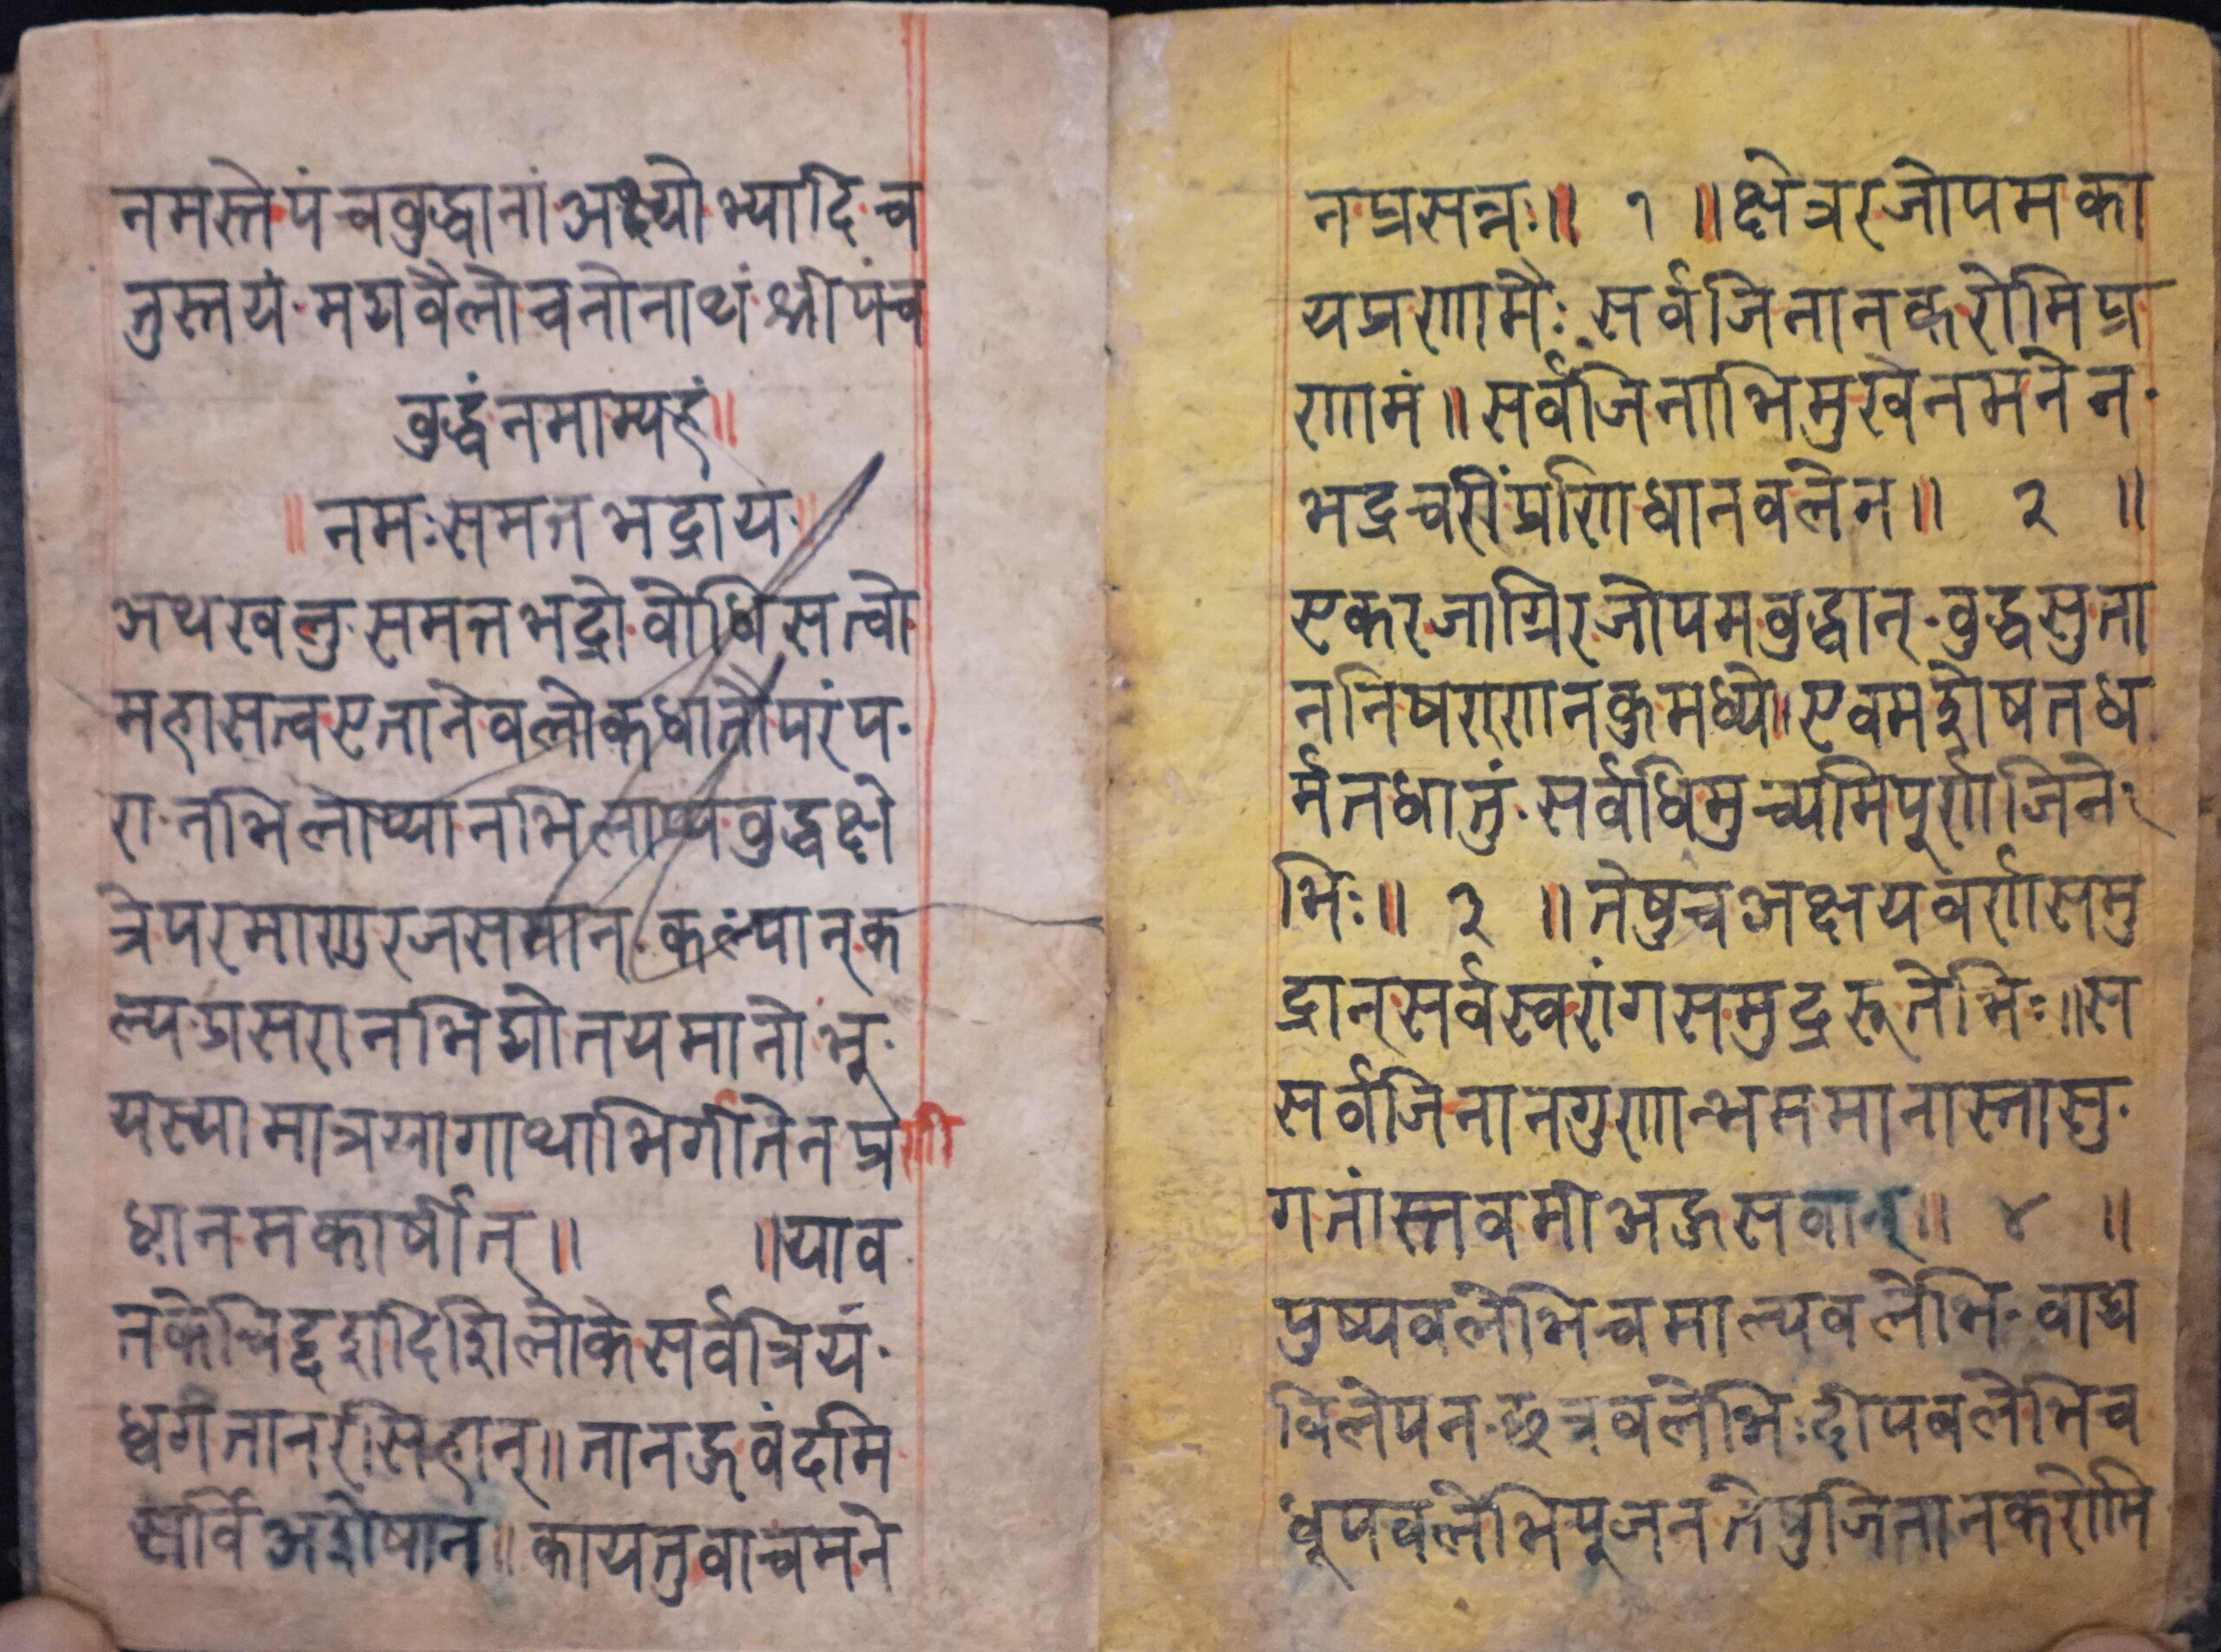 नमस्ते पंचवुद्धानां अक्ष्योभ्यादि च
तुस्तयं मद्यवैलोचनोनाथं श्रीपंच
वुद्धं नमाम्यहं॥
॥ नमः समन्तभद्राय ॥
अथ खलु समन्तभद्रो वोधिसत्वो
महासत्व एतानेव लोकधातौ परंप
रा नभिलाप्यानभिलाप्य वुद्धक्षे
त्रे परमाणुरजसमान् कल्पान् क
ल्प प्रसरानभिद्योतयमानो भू
यस्या मात्रया गाथाभिगीतेन प्रणी
धानमकार्षीत्॥ ॥ याव
तकेचिद्दशदिशि लोके सर्वत्रियं
ध्वगता नरसिहान्॥ तानहु वंदमि
सर्वि अशेषान्॥ कायतु वाच मने
न प्रसन्नः॥ १ ॥ क्षेत्ररजोपमका
यप्रणामैः सर्वजिनान करोमि प्र
णामं॥ सर्वजिनाभिमुखेन मनेन
भद्रचरीं प्रणिधानवलेन॥ २ ॥
एकरजाग्रिरजोपमवुद्धान् वुद्धसुता
न निषण्णानकु मध्ये॥ एवमशेषत ध
र्मतधातुं सर्वधिमुच्यमि पूर्ण जिने
भिः॥ ३ ॥ तेषु च अक्षयवर्णसमु
द्रान् सर्वस्वरांगसमुद्ररूतेभिः॥ स
सर्वजिनान गुणान्भममानास्तासु
गतांस्तवमी अहु सवान्॥ ४ ॥
पुष्पवलेभि च माल्यवलेभि वाद्य
विलेपन छत्रवलेभिः दीपवलेभि च
धूपवलेभि पूजन तेषु जिनान करोमि